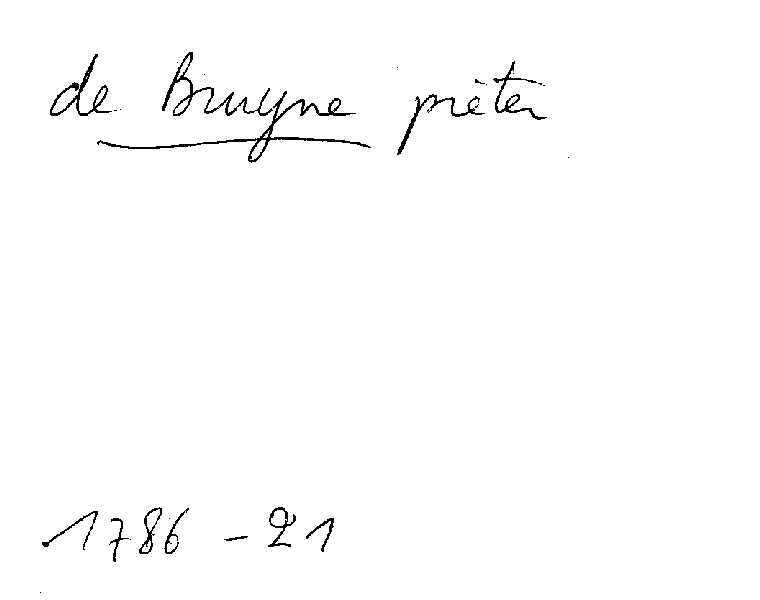 de Bruyne pieter
1786 - 21